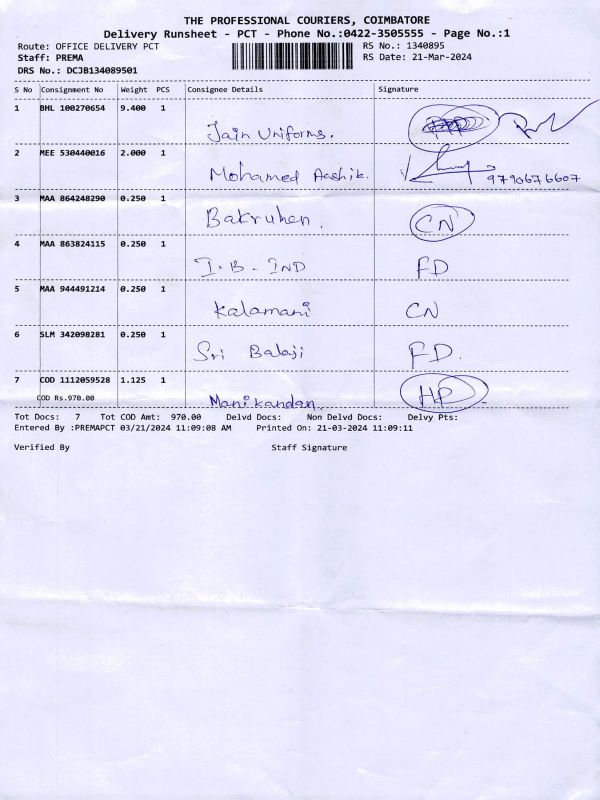 THE PROFESSIONAL COURIERS, COIMBATORE
Delivery Runsheet - PCT - Phone No.:0422-3505555 - Page No.:1
Route: OFFICE DELIVERY PCT RS No.: 1340895
Staff: PREMA RS Date: 21-Mar-2024
DRS No.: DCJB134089501
S No Consignment No Weight PCS Consignee Details Signature
1 BHL 100270654 9.400 1
Jain Uniforms.
2 MEE 530440016 2.000 1
Mohamed Aashik. 9790676607
3 MAA 864248290 0.250 1
Bakruhen. CN
4 MAA 863824115 0.250 1
I.B - IND FD
5 MAA 944491214 0.250 1
Kalamani CN
6 SLM 342098281 0.250 1
Sri Balaji FD.
7 COD 1112059528 1.125 1
COD Rs.970.00 Manikandan. HP
Tot Docs: 7 Tot COD Amt: 970.00 Delvd Docs: Non Delvd Docs: Delvy Pts:
Entered By :PREMAPCT 03/21/2024 11:09:08 AM Printed On: 21-03-2024 11:09:11
Verified By Staff Signature